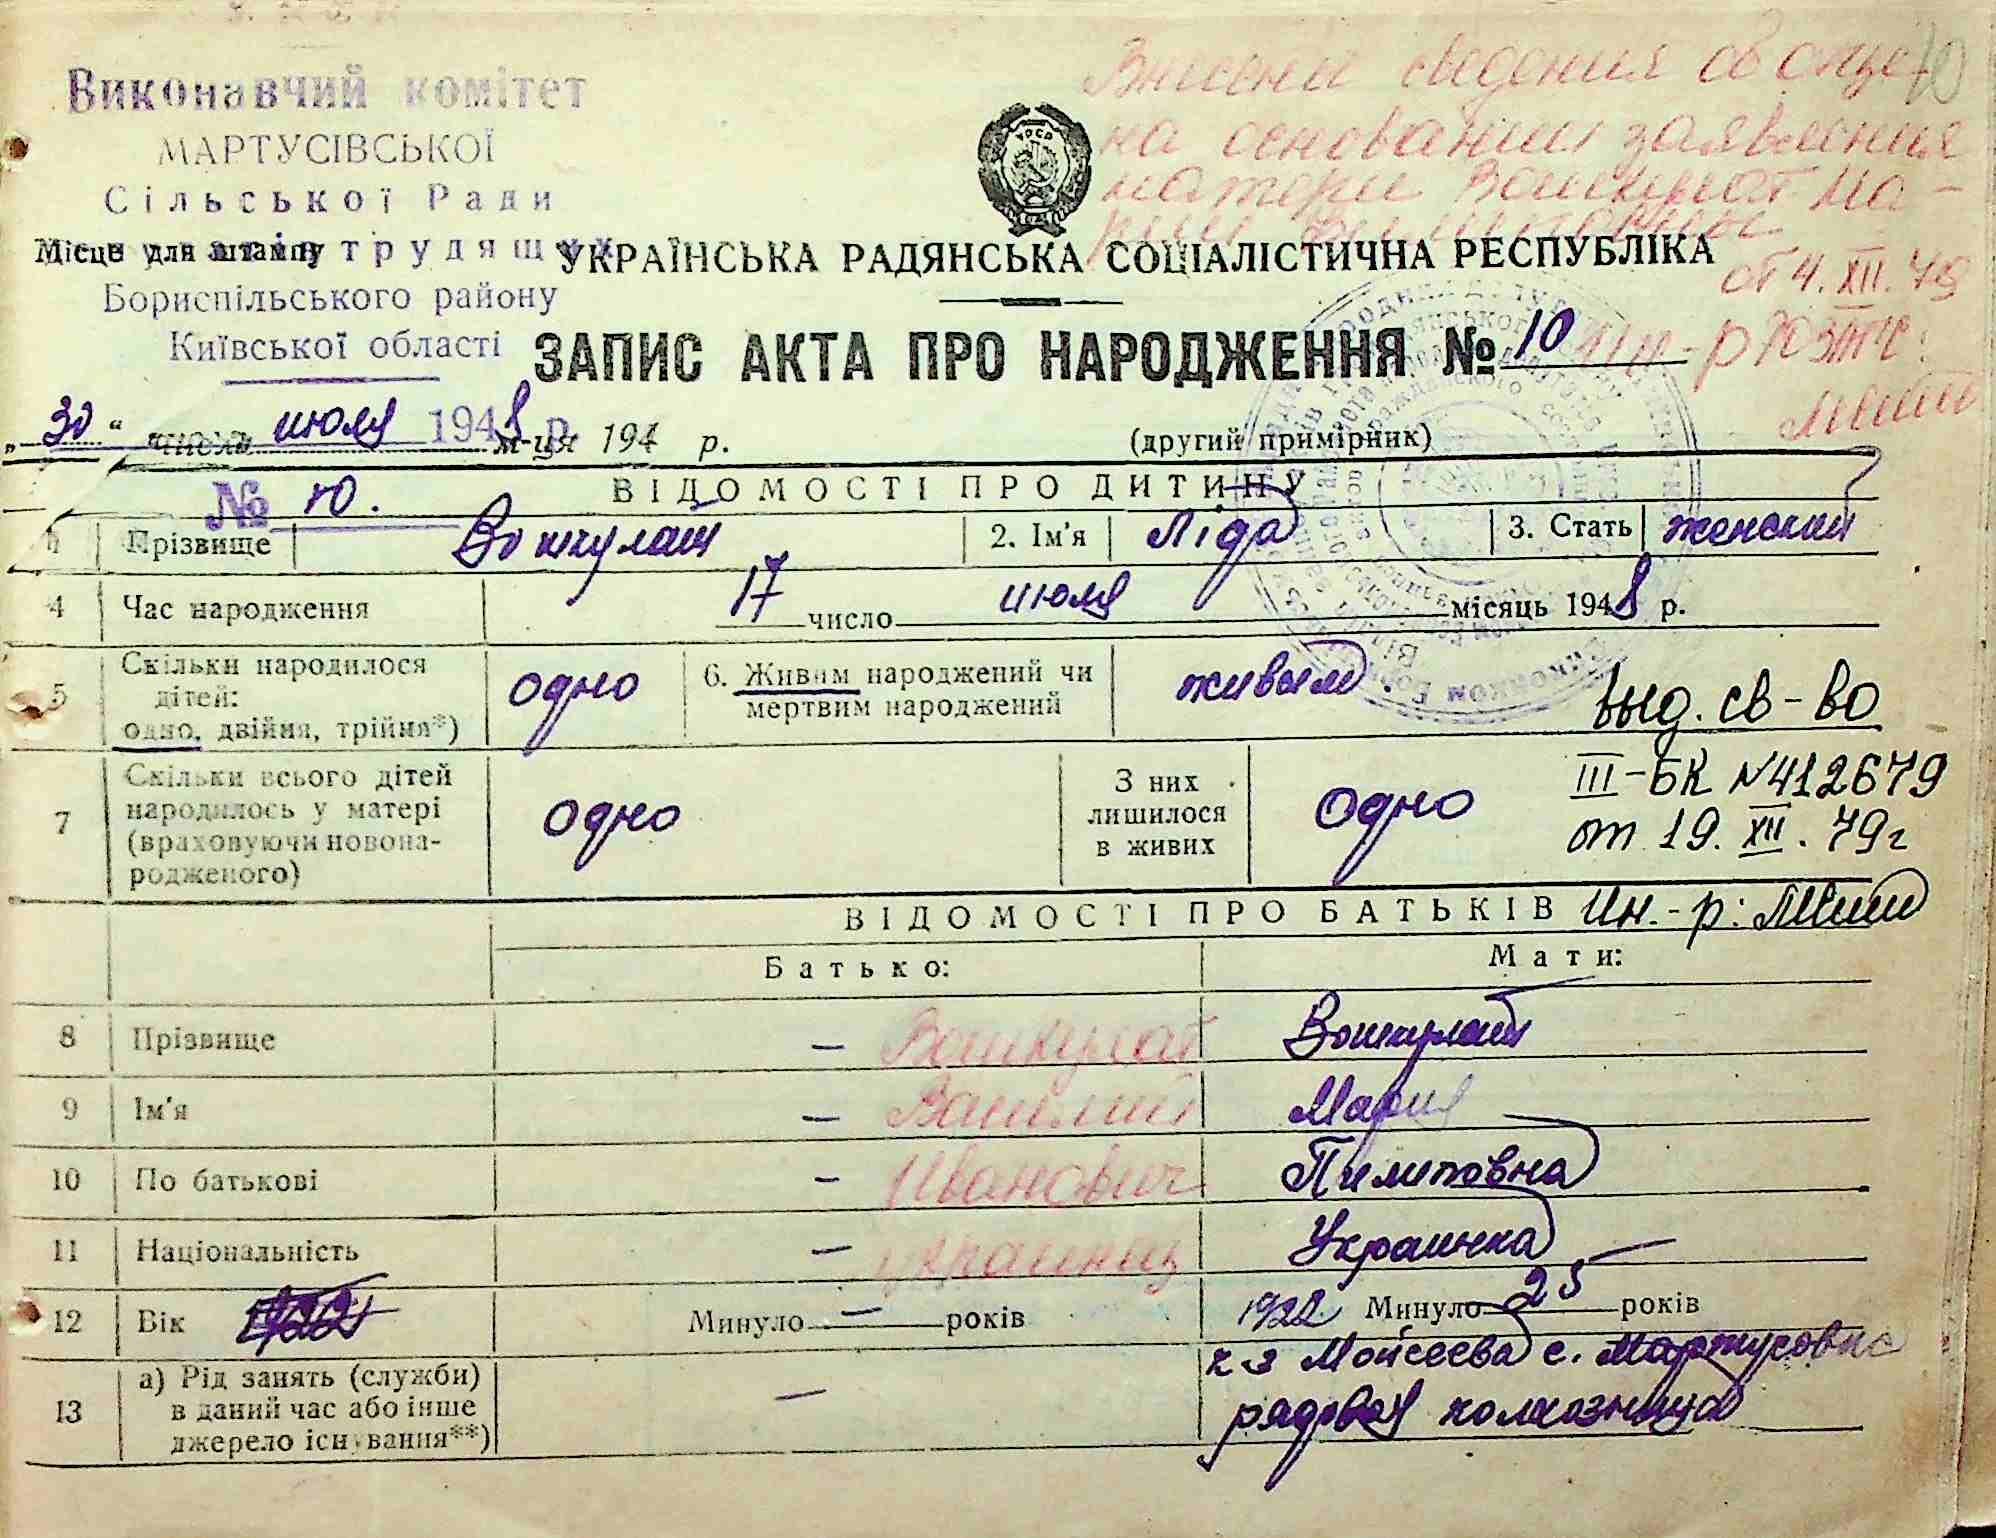 Внесены сведения об отце
на основании заявления
матери Вошкулат Ма-
рии
от 4.XII.79
Виконавчий комітет
МАРТУСІВСЬКОЇ
Сільської Ради
трудящих
Місце для штампу
Бориспільського району
Київської області
УРСР
УКРАЇНСЬКА РАДЯНСЬКА СОЦІАЛІСТИЧНА РЕСПУБЛІКА
ЗАПИС АКТА ПРО НАРОДЖЕННЯ № 10
„30“ числа июля 1948 р. м-ця 194 р.
(другий примірник)
№ 10.
ВІДОМОСТІ ПРО ДИТИНУ
Прізвище Вошкулат 2. Ім'я Ліда 3. Стать женский
4 Час народження 17 число июля місяць 1948 р.
5 Скільки народилося дітей: одно, двійня, трійня*) одно 6. Живим народжений чи мертвим народжений живым
выд. св-во
III-БК №412679
от 19.XII.79г
Ин.-р:
7 Скільки всього дітей народилось у матері (враховуючи новонародженого) одно З них лишилося в живих одно
ВІДОМОСТІ ПРО БАТЬКІВ
Батько: Мати:
8 Прізвище — Вошкулат Вошкулат
9 Ім'я — Василий Мария
10 По батькові — Иванович Пилиповна
11 Національність — украинец Украинка
12 Вік 1922 Минуло — років 1922 Минуло 25 років
13 а) Рід занять (служби) в даний час або інше джерело існування**) — к з Мойсеева с. Мартусовка
рядовая колхозница